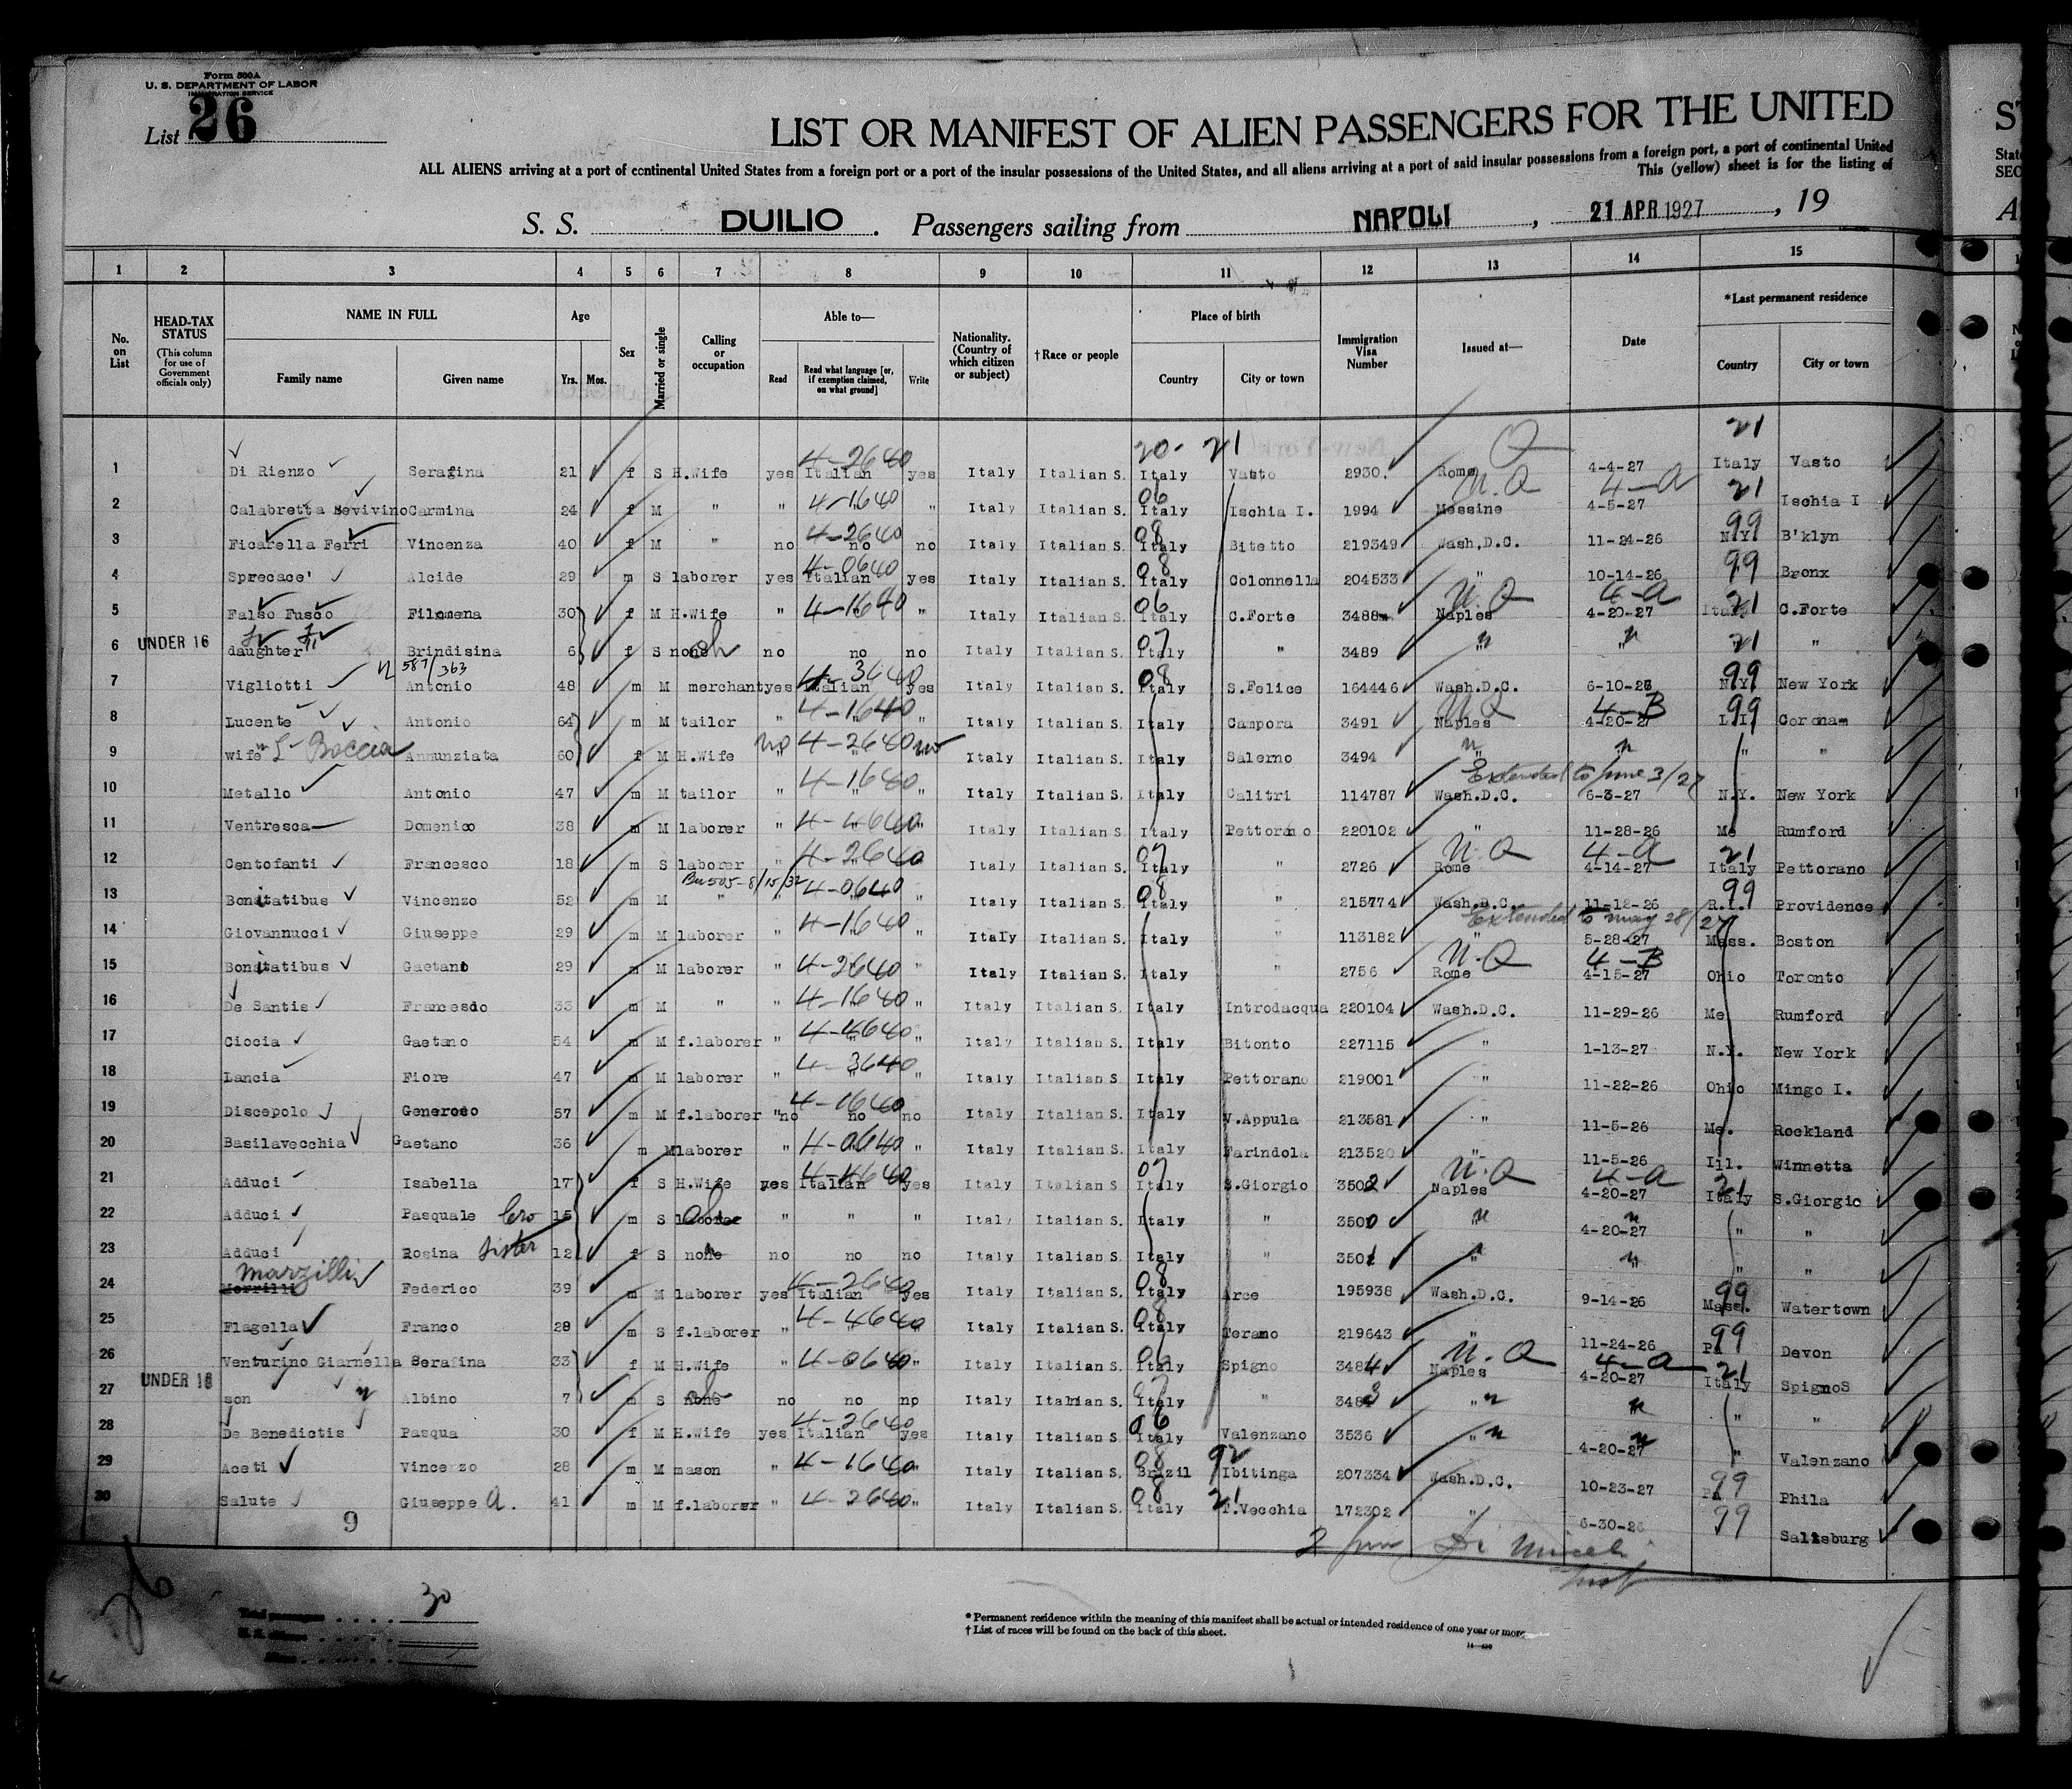 Form 500A
U. S. DEPARTMENT OF LABOR
IMMIGRATION SERVICE
List 26
LIST OR MANIFEST OF ALIEN PASSENGERS FOR THE UNITED
ALL ALIENS arriving at a port of continental United States from a foreign port or a port of the insular possessions of the United States, and all aliens arriving at a port of said insular possessions from a foreign port, a port of continental United
This (yellow) sheet is for the listing of
S. S. DUILIO. Passengers sailing from NAPOLI, 21 APR 1927, 19
1 2 3 4 5 6 7 8 9 10 11 12 13 14 15
No. on List
HEAD-TAX STATUS (This column for use of Government officials only)
NAME IN FULL Family name Given name
Age Yrs. Mos.
Sex
Married or single
Calling or occupation
Able to— Read Read what language [or, if exemption claimed, on what ground] Write
Nationality. (Country of which citizen or subject)
† Race or people
Place of birth Country City or town
Immigration Visa Number
Issued at—
Date
*Last permanent residence Country City or town
20- 21 21
1 Di Rienzo Serafina 21 f S H.Wife yes 4-2640 Italian yes Italy Italian S. Italy Vasto 2930. Rome 4-4-27 Italy Vasto
2 Calabretta Bevivino Carmina 24 f M " " 4-1640 " Italy Italian S. 06 Italy Ischia I. 1994 N.Q Messine 4-a 4-5-27 21 Ischia I
3 Ficarella Ferri Vincenza 40 f M " no 4-2640 no no Italy Italian S. 08 Italy Bitetto 219349 Wash.D.C. 11-24-26 99 N.Y. B'klyn
4 Sprecace' Alcide 29 m S laborer yes 4-0640 Italian yes Italy Italian S. 08 Italy Colonnella 204533 " 10-14-26 99 Bronx
5 Falso Fusco Filomena 30 f M H.Wife " 4-1640 " Italy Italian S. 06 Italy C.Forte 3488 N.Q Naples 4-a 4-20-27 21 Italy C.Forte
6 UNDER 16 daughter Brindisina 6 f S none ch no no no Italy Italian S. 07 Italy " 3489 " " 21 "
7 Vigliotti 587/363 Antonio 48 m M merchant yes 4-3640 Italian yes Italy Italian S. 08 Italy S.Felice 164446 Wash.D.C. 6-10-26 99 N.Y. New York
8 Lucente Antonio 64 m M tailor " 4-1640 " Italy Italian S. Italy Campora 3491 N.Q Naples 4-B 4-20-27 99 L.I. Coronam
9 wife Boccia Annunziata 60 f M H.Wife no 4-2640 no Italy Italian S. Italy Salerno 3494 " " " "
10 Metallo Antonio 47 m M tailor " 4-1640 " Italy Italian S. Italy Calitri 114787 Extended to June 3/27 Wash.D.C. 6-3-27 N.Y. New York
11 Ventresca Domenico 38 m M laborer " 4-4640 " Italy Italian S. Italy Pettorano 220102 " 11-28-26 Me Rumford
12 Centofanti Francesco 18 m S laborer " 4-2640 Italy Italian S. 07 Italy " 2726 N.Q Rome 4-a 4-14-27 21 Italy Pettorano
13 Bonitatibus Vincenzo 52 m M " " 4-0640 " Italy Italian S. 08 Italy " 215774 Wash.D.C. 11-12-26 99 R.I. Providence
14 Giovannucci Giuseppe 29 m M laborer " 4-1640 " Italy Italian S. Italy " 113182 Extended to may 28/27 " 5-28-27 Mass. Boston
15 Bonitatibus Gaetano 29 m M laborer " 4-2640 " Italy Italian S. Italy " 2756 N.Q Rome 4-B 4-15-27 Ohio Toronto
16 De Santis Francesco 33 m M " " 4-1640 " Italy Italian S. Italy Introdacqua 220104 Wash.D.C. 11-29-26 Me Rumford
17 Ciocia Gaetano 54 m M f.laborer " 4-4640 " Italy Italian S. Italy Bitonto 227115 " 1-13-27 N.Y. New York
18 Lancia Fiore 47 m M laborer " 4-3640 " Italy Italian S. Italy Pettorano 219001 " 11-22-26 Ohio Mingo I.
19 Discepolo Generoso 57 m M f.laborer no 4-1640 no no Italy Italian S. Italy V.Appula 213581 " 11-5-26 Me. Rockland
20 Basilavecchia Gaetano 36 m M laborer " 4-0640 " Italy Italian S. Italy Farindola 213520 " 11-5-26 Ill. Winnetta
21 Adduci Isabella 17 f S H.Wife yes 4-4640 Italian yes Italy Italian S. 07 Italy S.Giorgio 3502 N.Q Naples 4-a 4-20-27 21 Italy S.Giorgio
22 Adduci Pasquale bro 15 m S laborer ch " " " Italy Italian S. Italy " 3500 " 4-20-27 " "
23 Adduci Rosina sister 12 f S none no no no Italy Italian S. Italy " 3501 " " " "
24 Marzilli Federico 39 m M laborer yes 4-2640 Italian yes Italy Italian S. 08 Italy Arce 195938 Wash.D.C. 9-14-26 99 Mass. Watertown
25 Flagella Franco 28 m S f.laborer " 4-4640 Italy Italian S. 08 Italy Teramo 219643 " 11-24-26 99 Pa Devon
26 Venturino Giarnella Serafina 33 f M H.Wife " 4-0640 " Italy Italian S. 06 Italy Spigno 3484 N.Q Naples 4-a 4-20-27 21 Italy SpignoS
27 UNDER 16 son Albino 7 m S none ch no no no Italy Italian S. 07 Italy " 3483 " " " "
28 De Benedictis Pasqua 30 f M H.Wife yes 4-2640 Italian yes Italy Italian S. 06 Italy Valenzano 3536 " 4-20-27 " Valenzano
29 Aceti Vincenzo 28 m M mason " 4-1640 " Italy Italian S. 08 Brazil 92 Ibitinga 207334 Wash.D.C. 10-23-27 99 Pa Phila
30 Salute Giuseppe A. 41 m M f.laborer " 4-2640 " Italy Italian S. 08 Italy 21 T.Vecchia 172302 " 6-30-26 99 Saltsburg
9
26
Total passengers 30
U. S. citizens
Aliens
* Permanent residence within the meaning of this manifest shall be actual or intended residence of one year or more.
† List of races will be found on the back of this sheet.